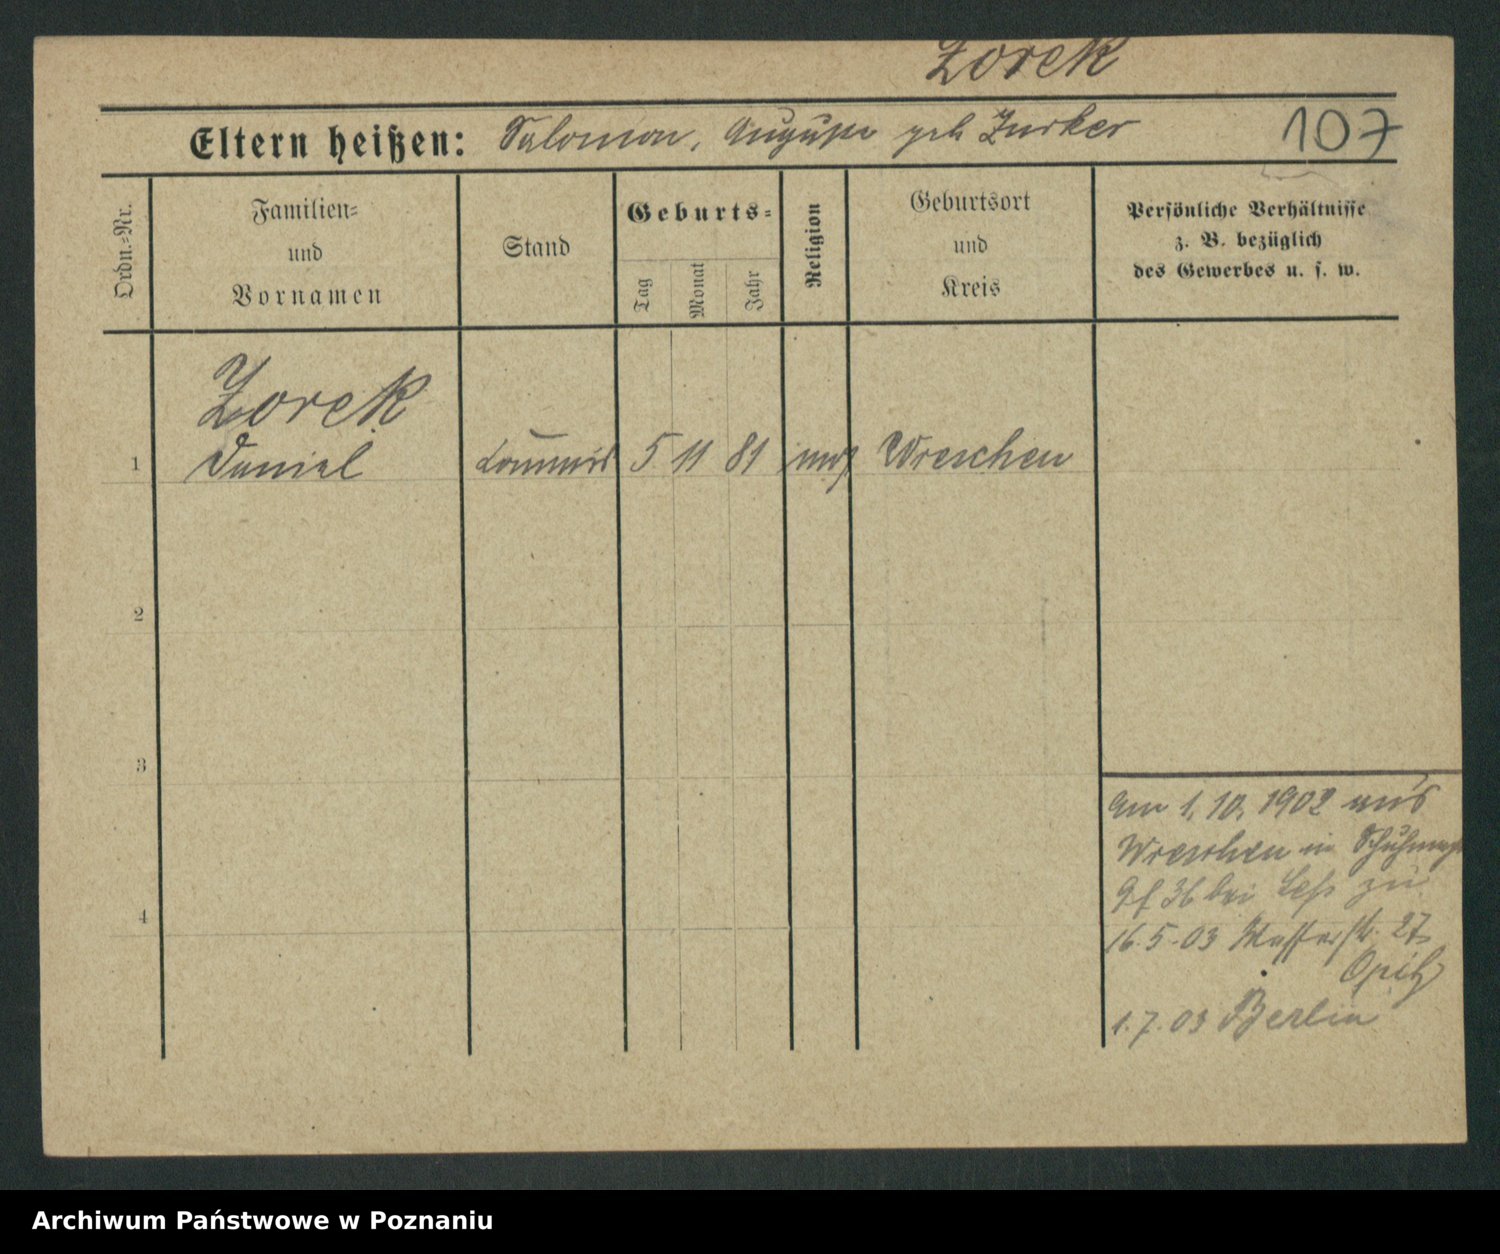 Zorek
Eltern heißen: Salomon, Auguste geb Zurker
107
Ordn.=Nr.
Familien=
und
Vornamen
Stand
Geburts=
Tag
Monat
Jahr
Religion
Geburtsort
und
Kreis
Persönliche Verhältnisse
z. B. bezüglich
des Gewerbes u. s. w.
Zorek
1 Daniel Commis 5 11 81 mos Wreschen
2
3
4
Am 1. 10. 1902 aus
Wreschen in
36 bei zu
16.5.03 Wasserstr. 27
Opitz
1.7.03 Berlin
Archiwum Państwowe w Poznaniu